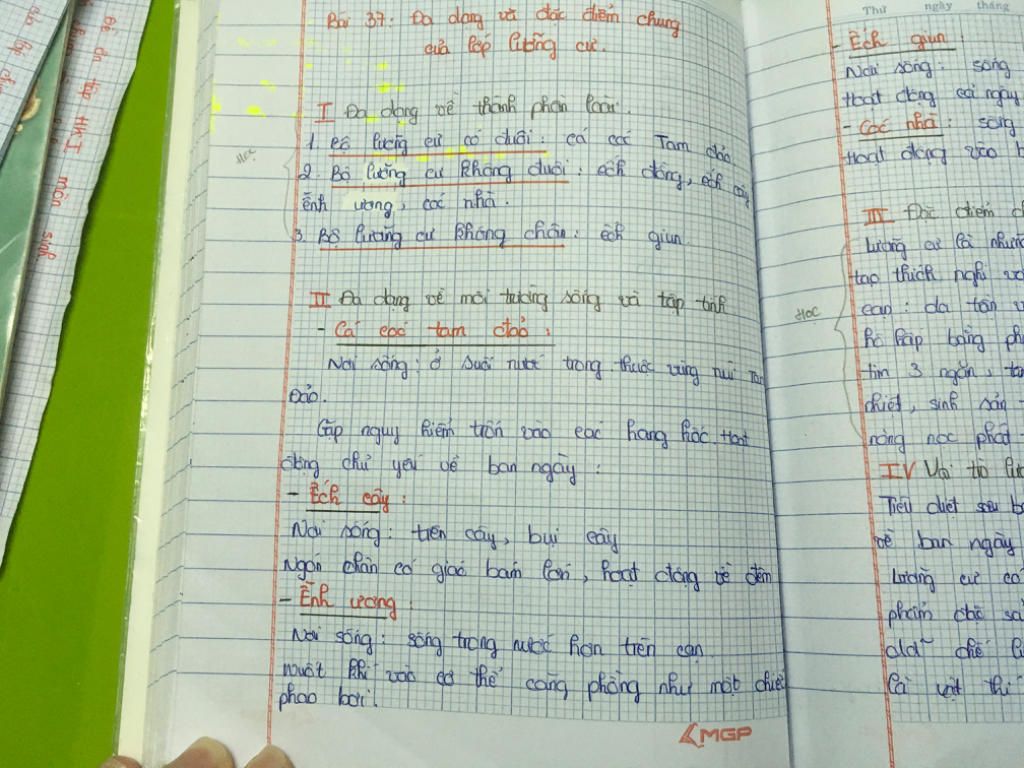 Bài 37: Đa dạng và đặc điểm chung
của lớp lưỡng cư.
I Đa dạng về thành phần loài.
1. Bộ lưỡng cư có đuôi: cá cóc Tam đảo
2. Bộ lưỡng cư không đuôi: ếch đồng, ếch cây
ễnh ương, cóc nhà.
3. Bộ lưỡng cư không chân: ếch giun
HỌC
II Đa dạng về môi trường sống và tập tính
- Cá cóc tam đảo:
Nơi sống: ở suối nước trong thuộc vùng núi Tam
Đảo.
Gặp nguy hiểm trốn vào các hang hốc. Hoạt
động chủ yếu về ban ngày:
- Ếch cây:
Nơi sống: trên cây, bụi cây
Ngón chân có giác bám lớn, hoạt động về đêm
- Ễnh ương:
Nơi sống: sống trong nước hơn trên cạn.
nuốt khí vào cơ thể căng phồng như một chiếc
phao bơi.
MGP
Thứ ngày tháng
- Ếch giun:
Nơi sống: sống
Hoạt động cả ngày
- Cóc nhà: sống
Hoạt động vào
III Đặc điểm
Lưỡng cư là những
tạo thích nghi
cạn: da trần
hô hấp bằng
tim 3 ngăn,
nhiệt, sinh sản
nòng nọc phát
HỌC
IV Vai trò
Tiêu diệt sâu
về ban ngày
Lưỡng cư có
phẩm
chế
Là vật thí
Đề ôn tập HKI môn sinh